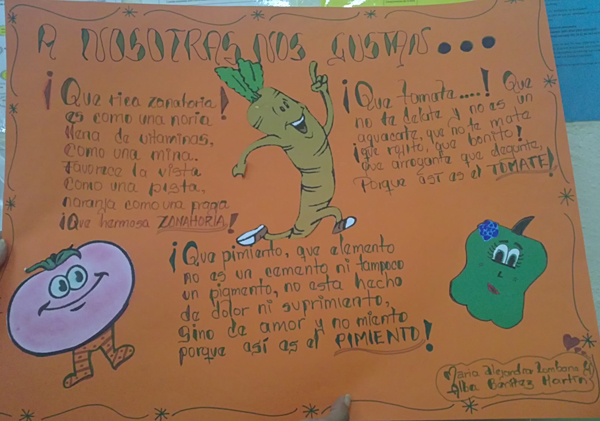 A NOSOTRAS NOS GUSTAN...
¡Que rica zanahoria!
es como una noria
llena de vitaminas,
como una mina.
Favorece la vista
como una pista,
naranja como una papa
¡Que hermosa ZANAHORIA!
¡Que tomate....! Que
no te delate y no es un
aguacate, que no te mate
¡que rojito, que bonito!
que arrogante que degunte,
Porque así es el TOMATE!
¡Que pimiento, que elemento
no es un cemento ni tampoco
un pigmento, no esta hecho
de dolor ni suprimiento,
sino de amor y no miento
porque así es el PIMIENTO!
Maria Alejandra Lombana
Alba Benitez Martin